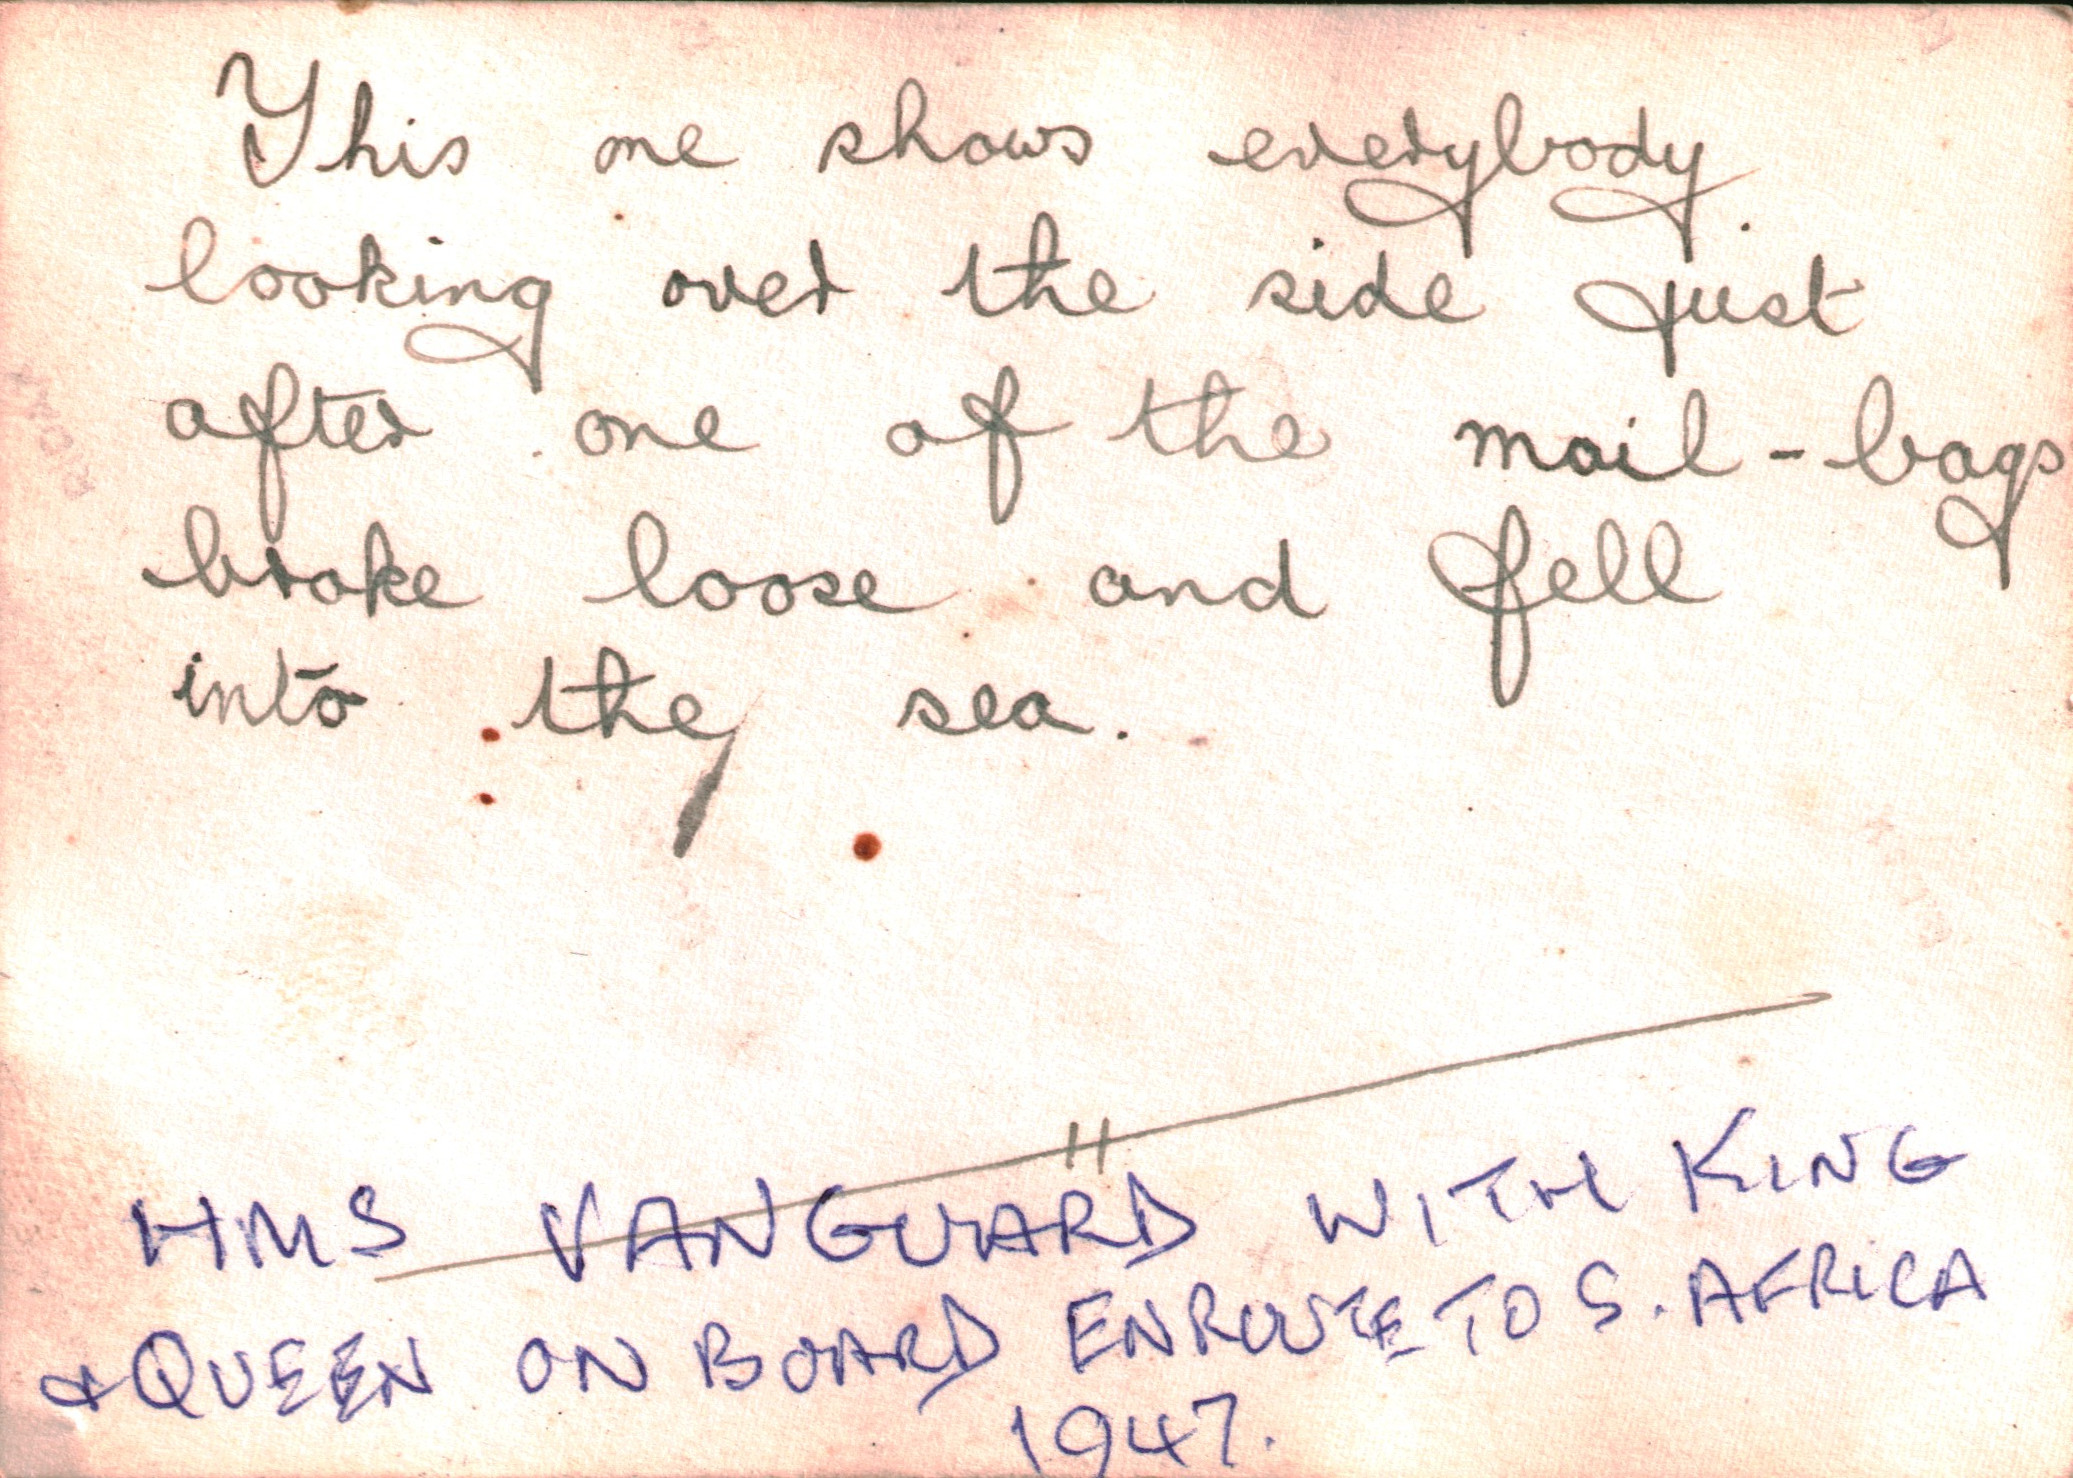 This one shows everybody
looking over the side just
after one of the mail-bags
broke loose and fell
into the sea.
HMS VANGUARD WITH KING
& QUEEN ON BOARD ENROUTE TO S. AFRICA
1947.